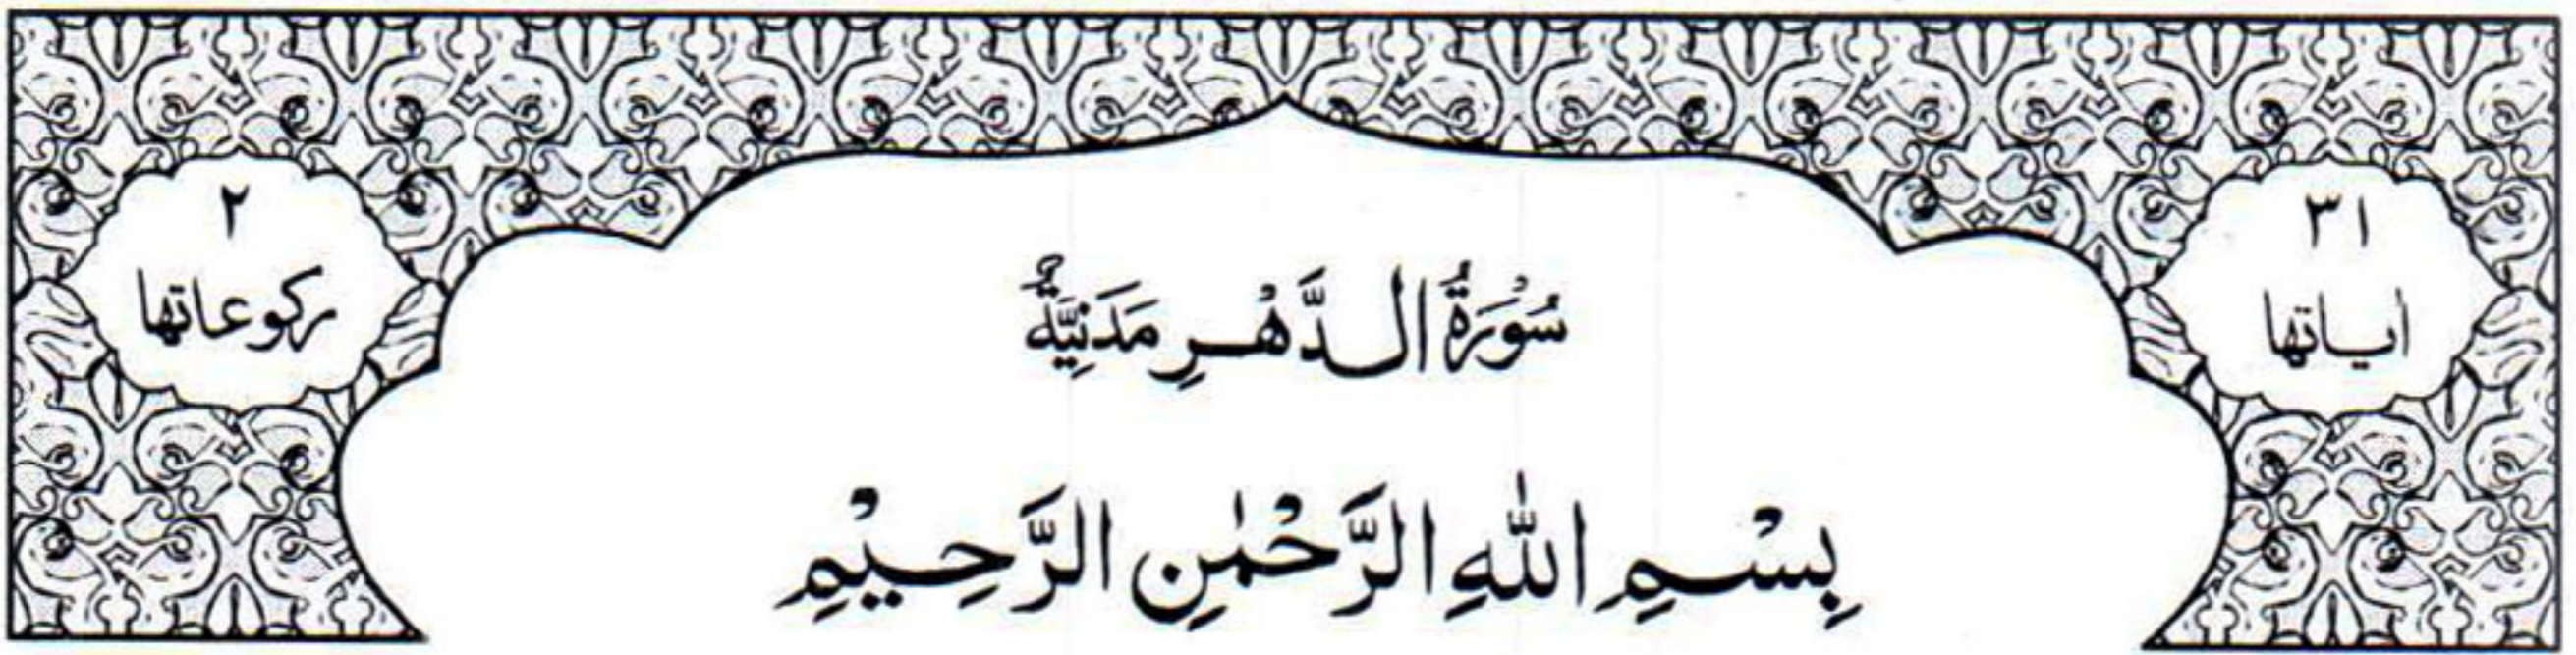 ٣١
أياتها
سُوْرَةُ الدَّهْرِ مَدَنِيَّةٌ
٢
ركوعاتها
بِسْمِ اللّٰهِ الرَّحْمٰنِ الرَّحِيْمِ